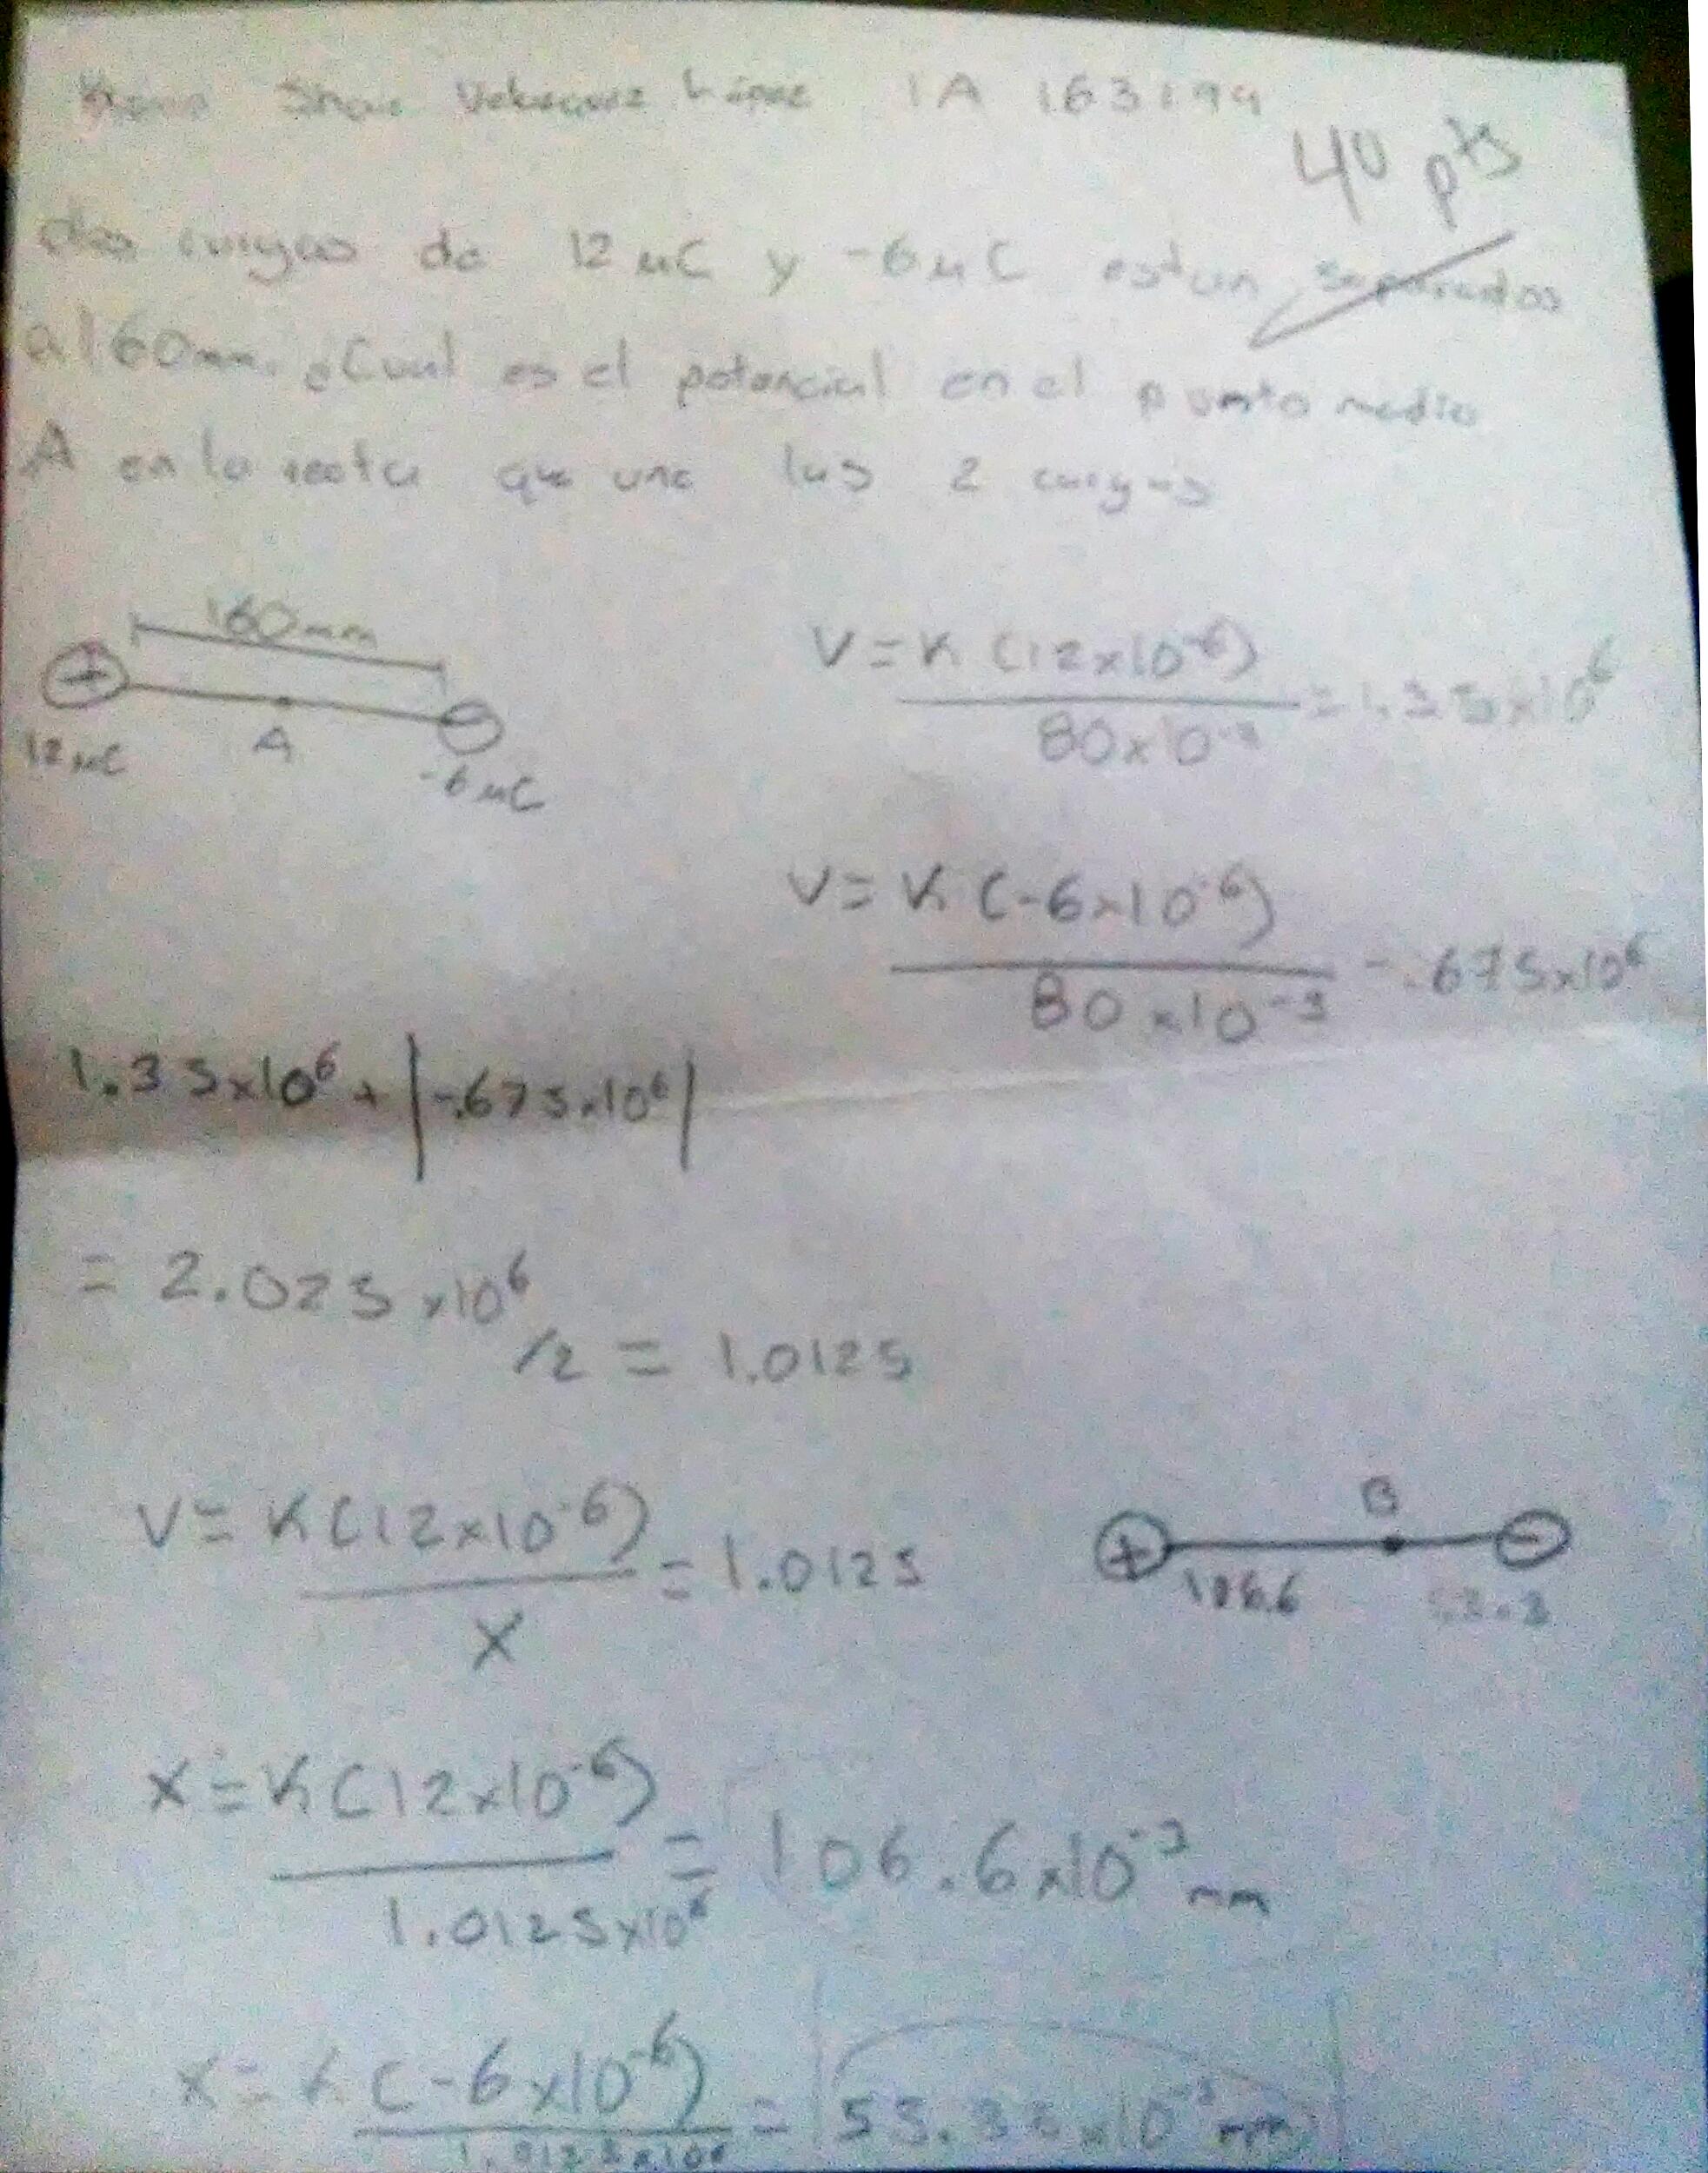 Shai Velazquez López 1A 163194
40 pts
dos cargas de 12 µC y -6 µC estan separados
a 160mm. ¿Cual es el potencial en el punto medio
A en la recta que une las 2 cargas
160mm
+
-
12 µC
A
-6 µC
V = K (12x10^-6)
80x10^-3
= 1.35x10^6
V = K (-6x10^-6)
80x10^-3
-.675x10^6
1.35x10^6 + |-.675x10^6|
= 2.025x10^6
/2 = 1.0125
V = K(12x10^-6)
X
= 1.0125
B
+
-
106.6
53.3
X = K(12x10^-6)
1.0125x10^6
= 106.6x10^-3 mm
X = K(-6x10^-6)
1.0125x10^6
= 53.33x10^-3 mm